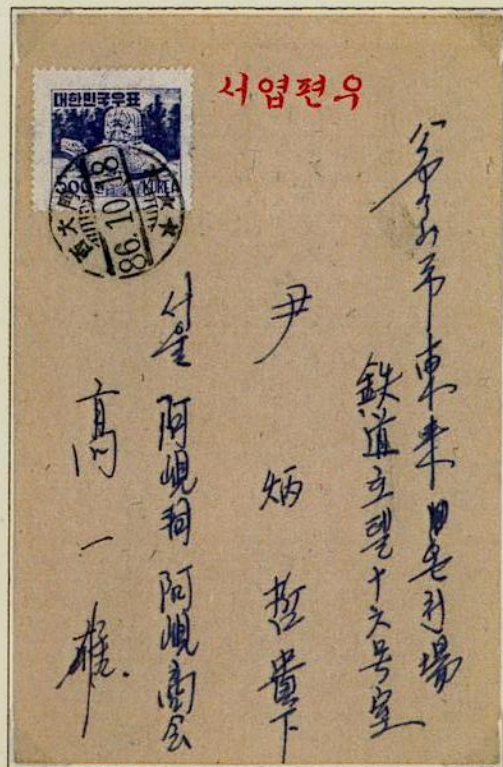 대한민국우표
500
KOREA
86.10.18
우편엽서
釜山市東来温泉場
鉄道호텔十六号室
尹 炳 哲 貴下
서울 阿峴洞 阿峴商会
高 一 雄